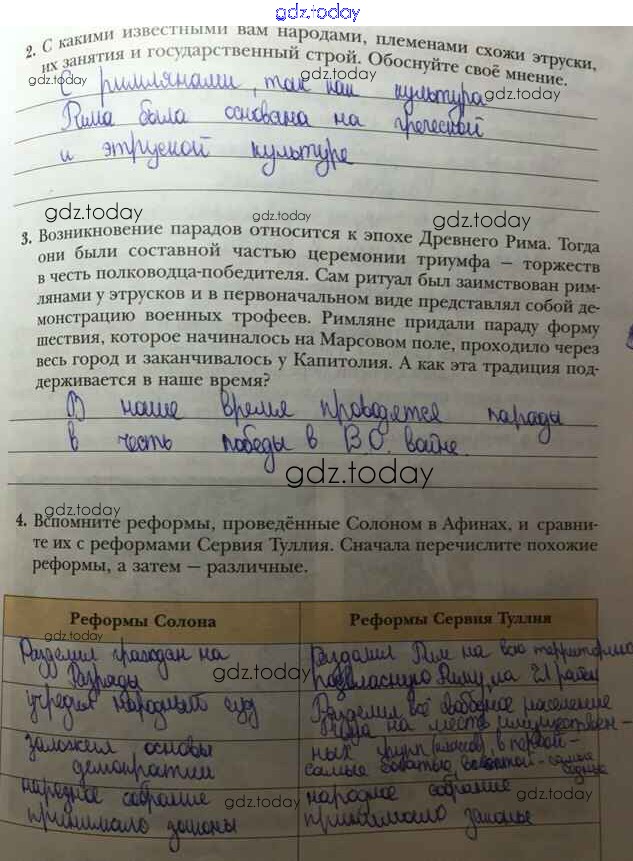 gdz.today
2. С какими известными вам народами, племенами схожи этруски,
их занятия и государственный строй. Обоснуйте своё мнение.
С римлянами, так как культура
Рима была основана на греческой
и этруской культуре
3. Возникновение парадов относится к эпохе Древнего Рима. Тогда
они были составной частью церемонии триумфа — торжеств
в честь полководца-победителя. Сам ритуал был заимствован рим-
лянами у этрусков и в первоначальном виде представлял собой де-
монстрацию военных трофеев. Римляне придали параду форму
шествия, которое начиналось на Марсовом поле, проходило через
весь город и заканчивалось у Капитолия. А как эта традиция под-
держивается в наше время?
В наше время проводятся парады
в честь победы в В.О. войне.
gdz.today
4. Вспомните реформы, проведённые Солоном в Афинах, и сравни-
те их с реформами Сервия Туллия. Сначала перечислите похожие
реформы, а затем — различные.
Реформы Солона
Реформы Сервия Туллия
Разделил граждан на
разряды
Рим на всю территорию
подвласную Риму, на 21 район
учредил народный суд
Разделил всё свободное население
на шесть имуществен-
ных групп (классов), в первой-
самые богатые, в - самые
бедные
заложил основы
демократии
народное собрание
принимало законы
народное собрание
принимало законы